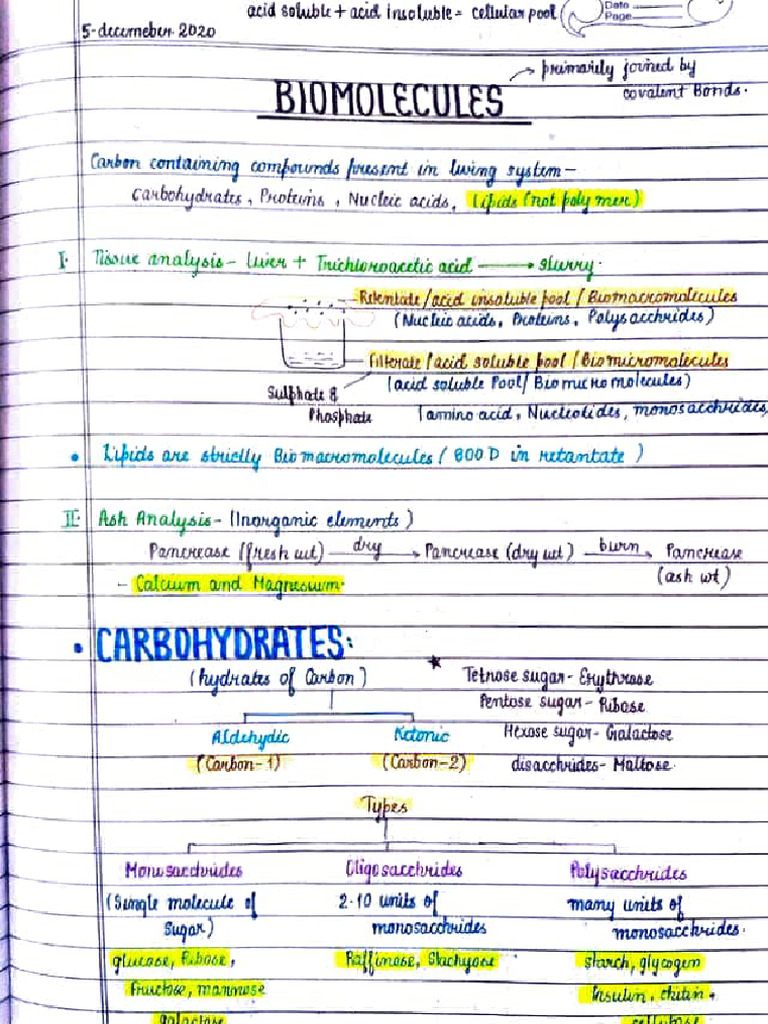 acid soluble + acid insoluble = cellular pool
Date
Page
5-decumeber 2020
primarely joined by
covalent Bonds.
BIOMOLECULES
Carbon containing compounds present in living system-
carbohydrates, Proteins, Nucleic acids, Lipids (not polymer)
I. Tissue analysis- liver + Trichloroacetic acid → slurry.
Retentate/acid insoluble pool/Biomacromolecules
(Nucleic acids, Proteins, Polysacchrides)
Filterate/acid soluble pool/Biomicromolecules
(acid soluble Pool/Biomicromolecules)
Sulphate &
Phosphate
(amino acid, Nucleotides, monosacchrides,
• Lipids are strictly Biomacromolecules (800 D in retantate)
II. Ash Analysis- (Inorganic elements)
Pancrease (fresh wt) dry → Pancrease (dry wt) burn → Pancrease
(ash wt)
- Calcium and Magnesium.
• CARBOHYDRATES:
(hydrates of Carbon)
★ Tetrose sugar- Erythrose
Pentose sugar- Ribose
Aldehydic Ketonic Hexose sugar- Galactose
(Carbon-1) (Carbon-2) disacchrides- Maltose.
Types
Monosacchrides Oligosacchrides Polysacchrides
(Single molecule of 2-10 units of many units of
sugar) monosacchrides monosacchrides.
glucose, Ribose, Raffinose, Stachyose starch, glycogen
fructose, mannose Insulin, chitin,
galactose cellulose